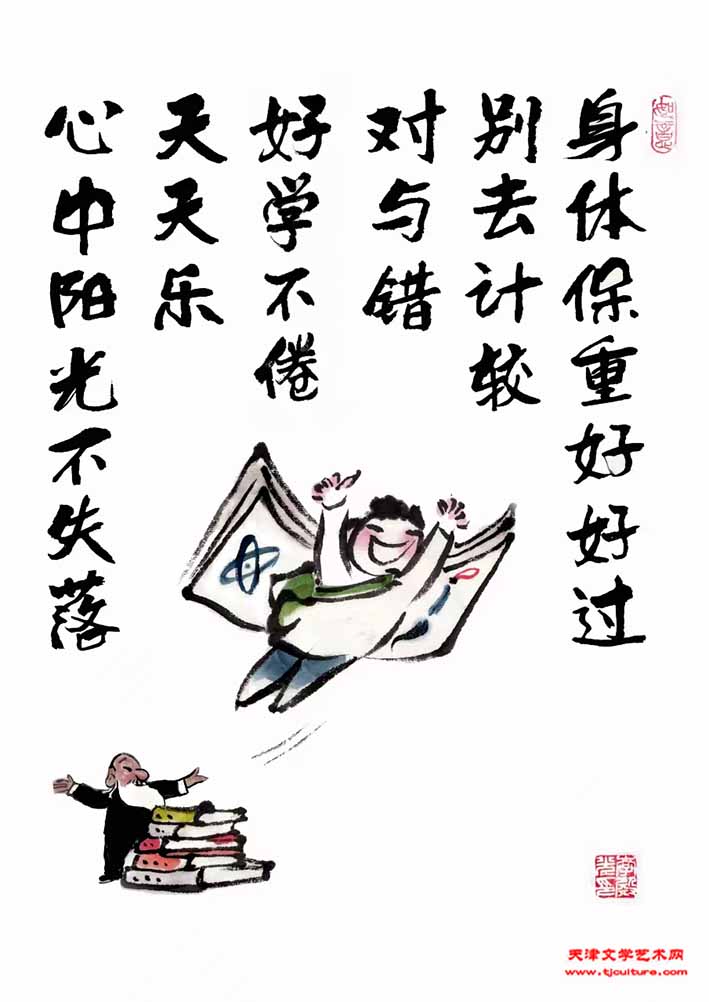 身体保重好好过
别去计较
对与错
好学不倦
天天乐
心中阳光不失落
天津文学艺术网
www.tjculture.com